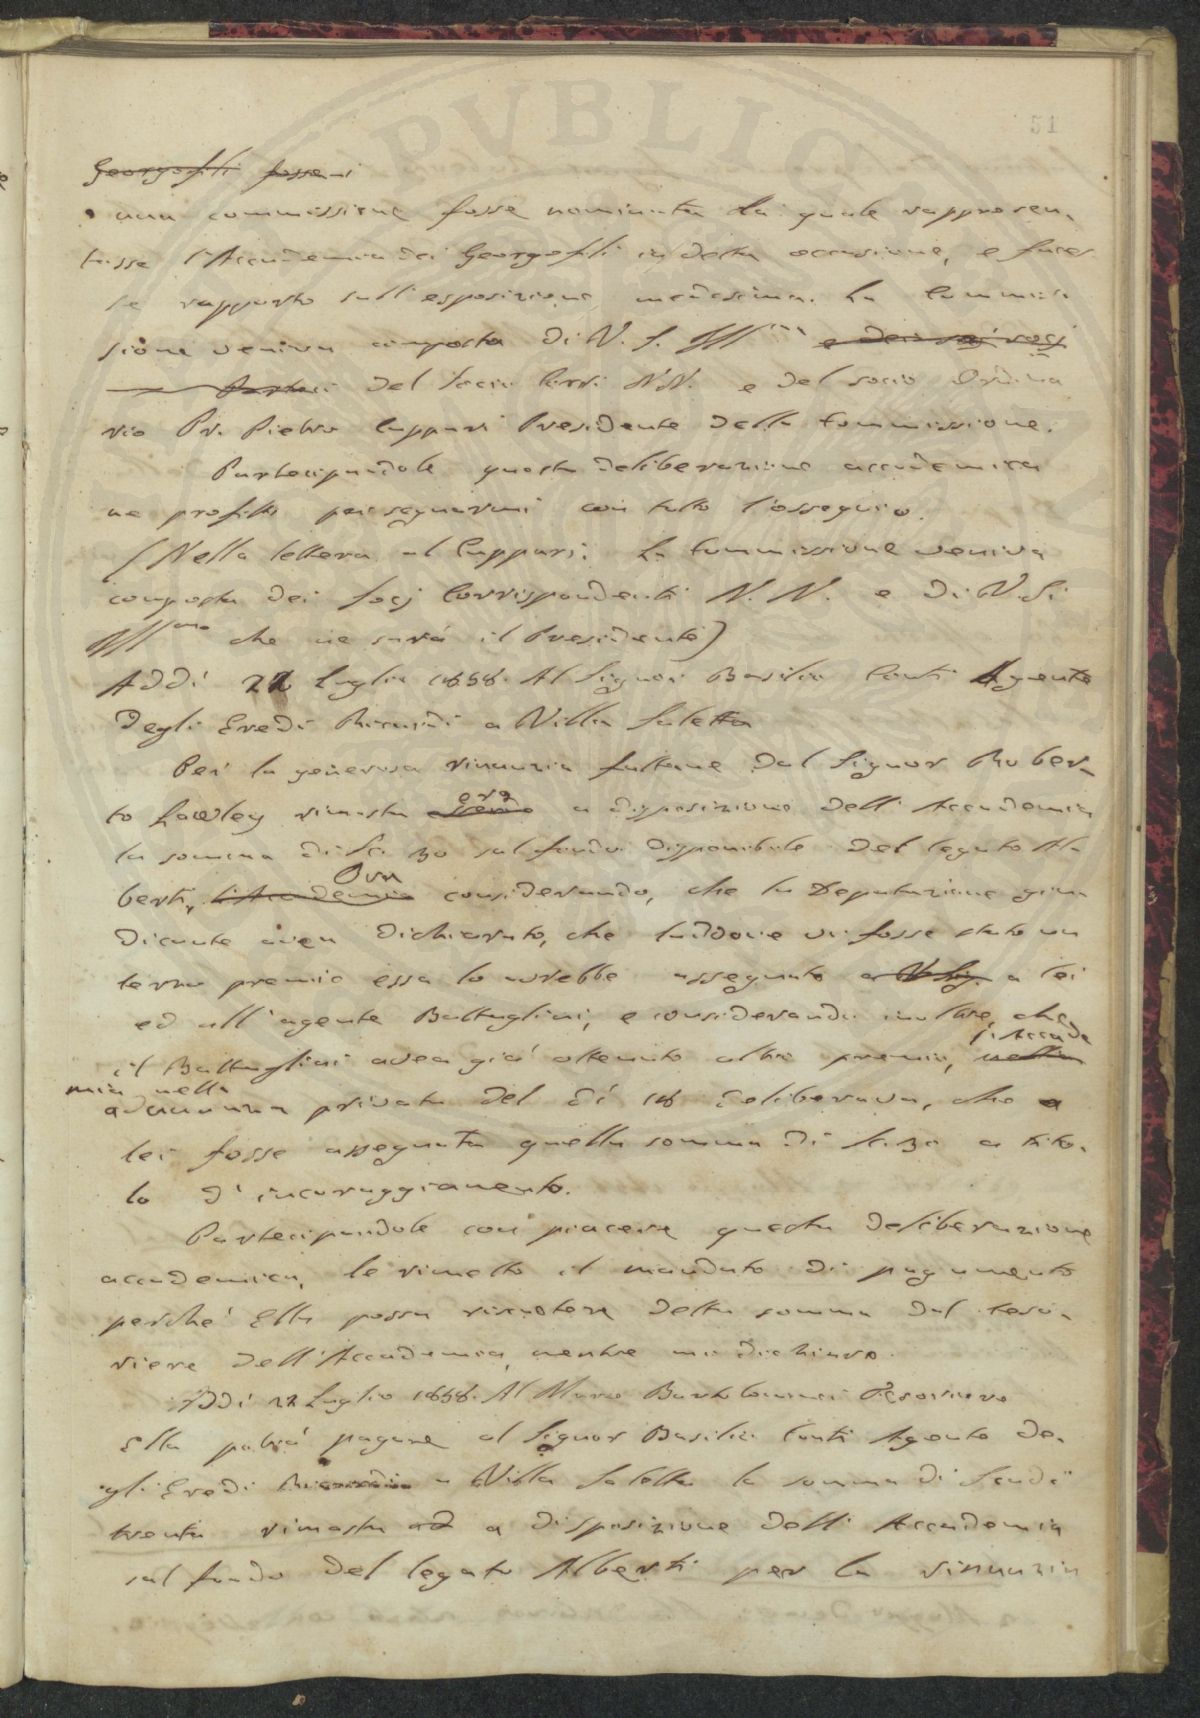 51
Georgofili fosse
una commissione fosse nominata la quale rappresen-
tasse l'Accademia dei Georgofili in detta occasione, e faces-
se rapporto sull'esposizione medesima. La Commis-
sione veniva composta di V. S. Ill.ma e dei soci
del Socio Corri. N.N. e del socio Ordina
rio Pr. Pietro Cuppari Presidente della Commissione.
Partecipandole questa deliberazione accademica
ne profitto per segnarmi con tutto l'ossequio.
(Nella lettera al Cuppari: La Commissione veniva
composta dei Socj Corrispondenti N. N. e di V. S.
Ill.ma che ne sarà il Presidente)
Addì 22 Luglio 1858. Al Signor Basilio Conti Agente
degli Eredi Riccardi a Villa Saletta
Per la generosa rinunzia fattane dal Signor Rober-
to Lawley rimasta era a disposizione dell'Accademia
la somma di Sci 30 sul fondo disponibile del legato Al
berti, l'Accademia Ora considerando, che la Deputazione giu
dicante avea dichiarato, che laddove vi fosse stato un
terzo premio essa lo avrebbe assegnato a V. Sig. a lei
ed all'agente Battaglini, e considerando inoltre, che
il Battaglini avea già ottenuto altri premii, nella l'Accade
mia nella
adunanza privata del dì 18 deliberava, che a
lei fosse assegnata quella somma di Sc. 30 a tito-
lo d'incoraggiamento.
Partecipandole con piacere questa deliberazione
accademica, le rimetto il mandato di pagamento
perché Ella possa riscuotere detta somma dal teso-
riere dell'Accademia, mentre mi dichiaro.
Addì 22 Luglio 1858. Al Marc. Bartolommei Tesoriere
Ella potrà pagare al Signor Basilio Conti Agente de-
gli Eredi Riccardi a Villa Saletta la somma di Scudi
trenta rimasta ad a disposizione dell'Accademia
sul fondo del legato Alberti per la rinunzia